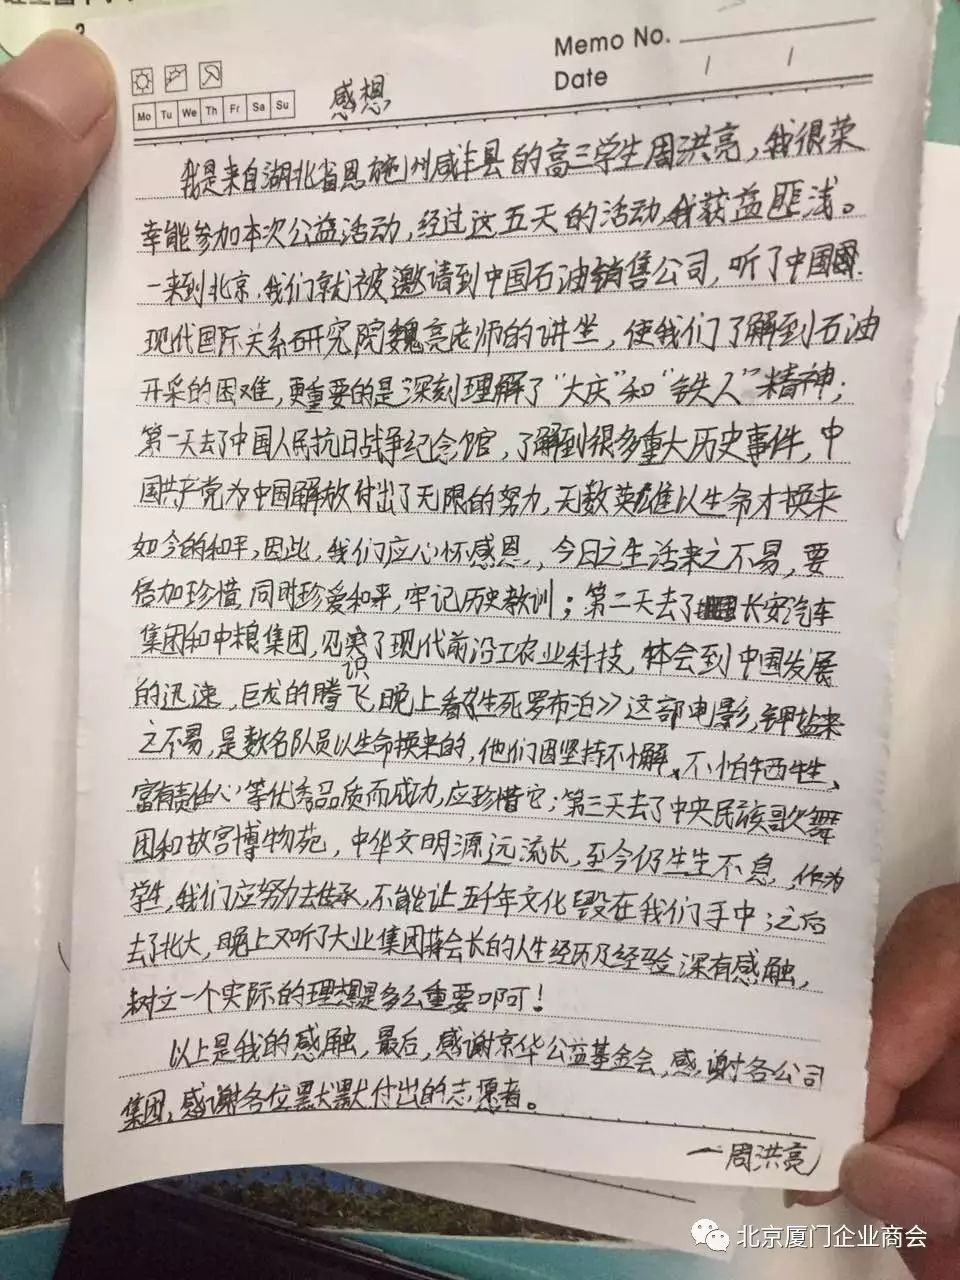 Memo No.
Date / /
Mo Tu We Th Fr Sa Su
感想
我是来自湖北省恩施州咸丰县的高三学生周洪亮，我很荣
幸能参加本次公益活动，经过这五天的活动，我获益匪浅。
一来到北京，我们就被邀请到中国石油销售公司，听了中国
现代国际关系研究院魏亮老师的讲坐，使我们了解到石油
开采的困难，更重要的是深刻理解了“大庆”和“铁人”精神；
第一天去了中国人民抗日战争纪念馆，了解到很多重大历史事件，中
国共产党为中国解放付出了无限的努力，无数英雄以生命才换来
如今的和平，因此，我们应心怀感恩，今日之生活来之不易，要
倍加珍惜，同时珍爱和平，牢记历史教训；第二天去了长安汽车
集团和中粮集团，见识了现代前沿工农业科技，体会到中国发展
的迅速，巨龙的腾飞，晚上看《生死罗布泊》这部电影，钾盐来
之不易，是数名队员以生命换来的，他们因坚持不懈、不怕牺牲、
富有责任心等优秀品质而成功，应珍惜它；第三天去了中央民族歌舞
团和故宫博物苑，中华文明源远流长，至今仍生生不息，作为
学生，我们应努力去传承，不能让五千年文化毁在我们手中；之后
去了北大，晚上又听了大业集团蒋会长的人生经历及经验深有感触，
树立一个实际的理想是多么重要啊！
以上是我的感触，最后，感谢京华公益基金会，感谢各公司
集团，感谢各位默默付出的志愿者。
一周洪亮
北京厦门企业商会